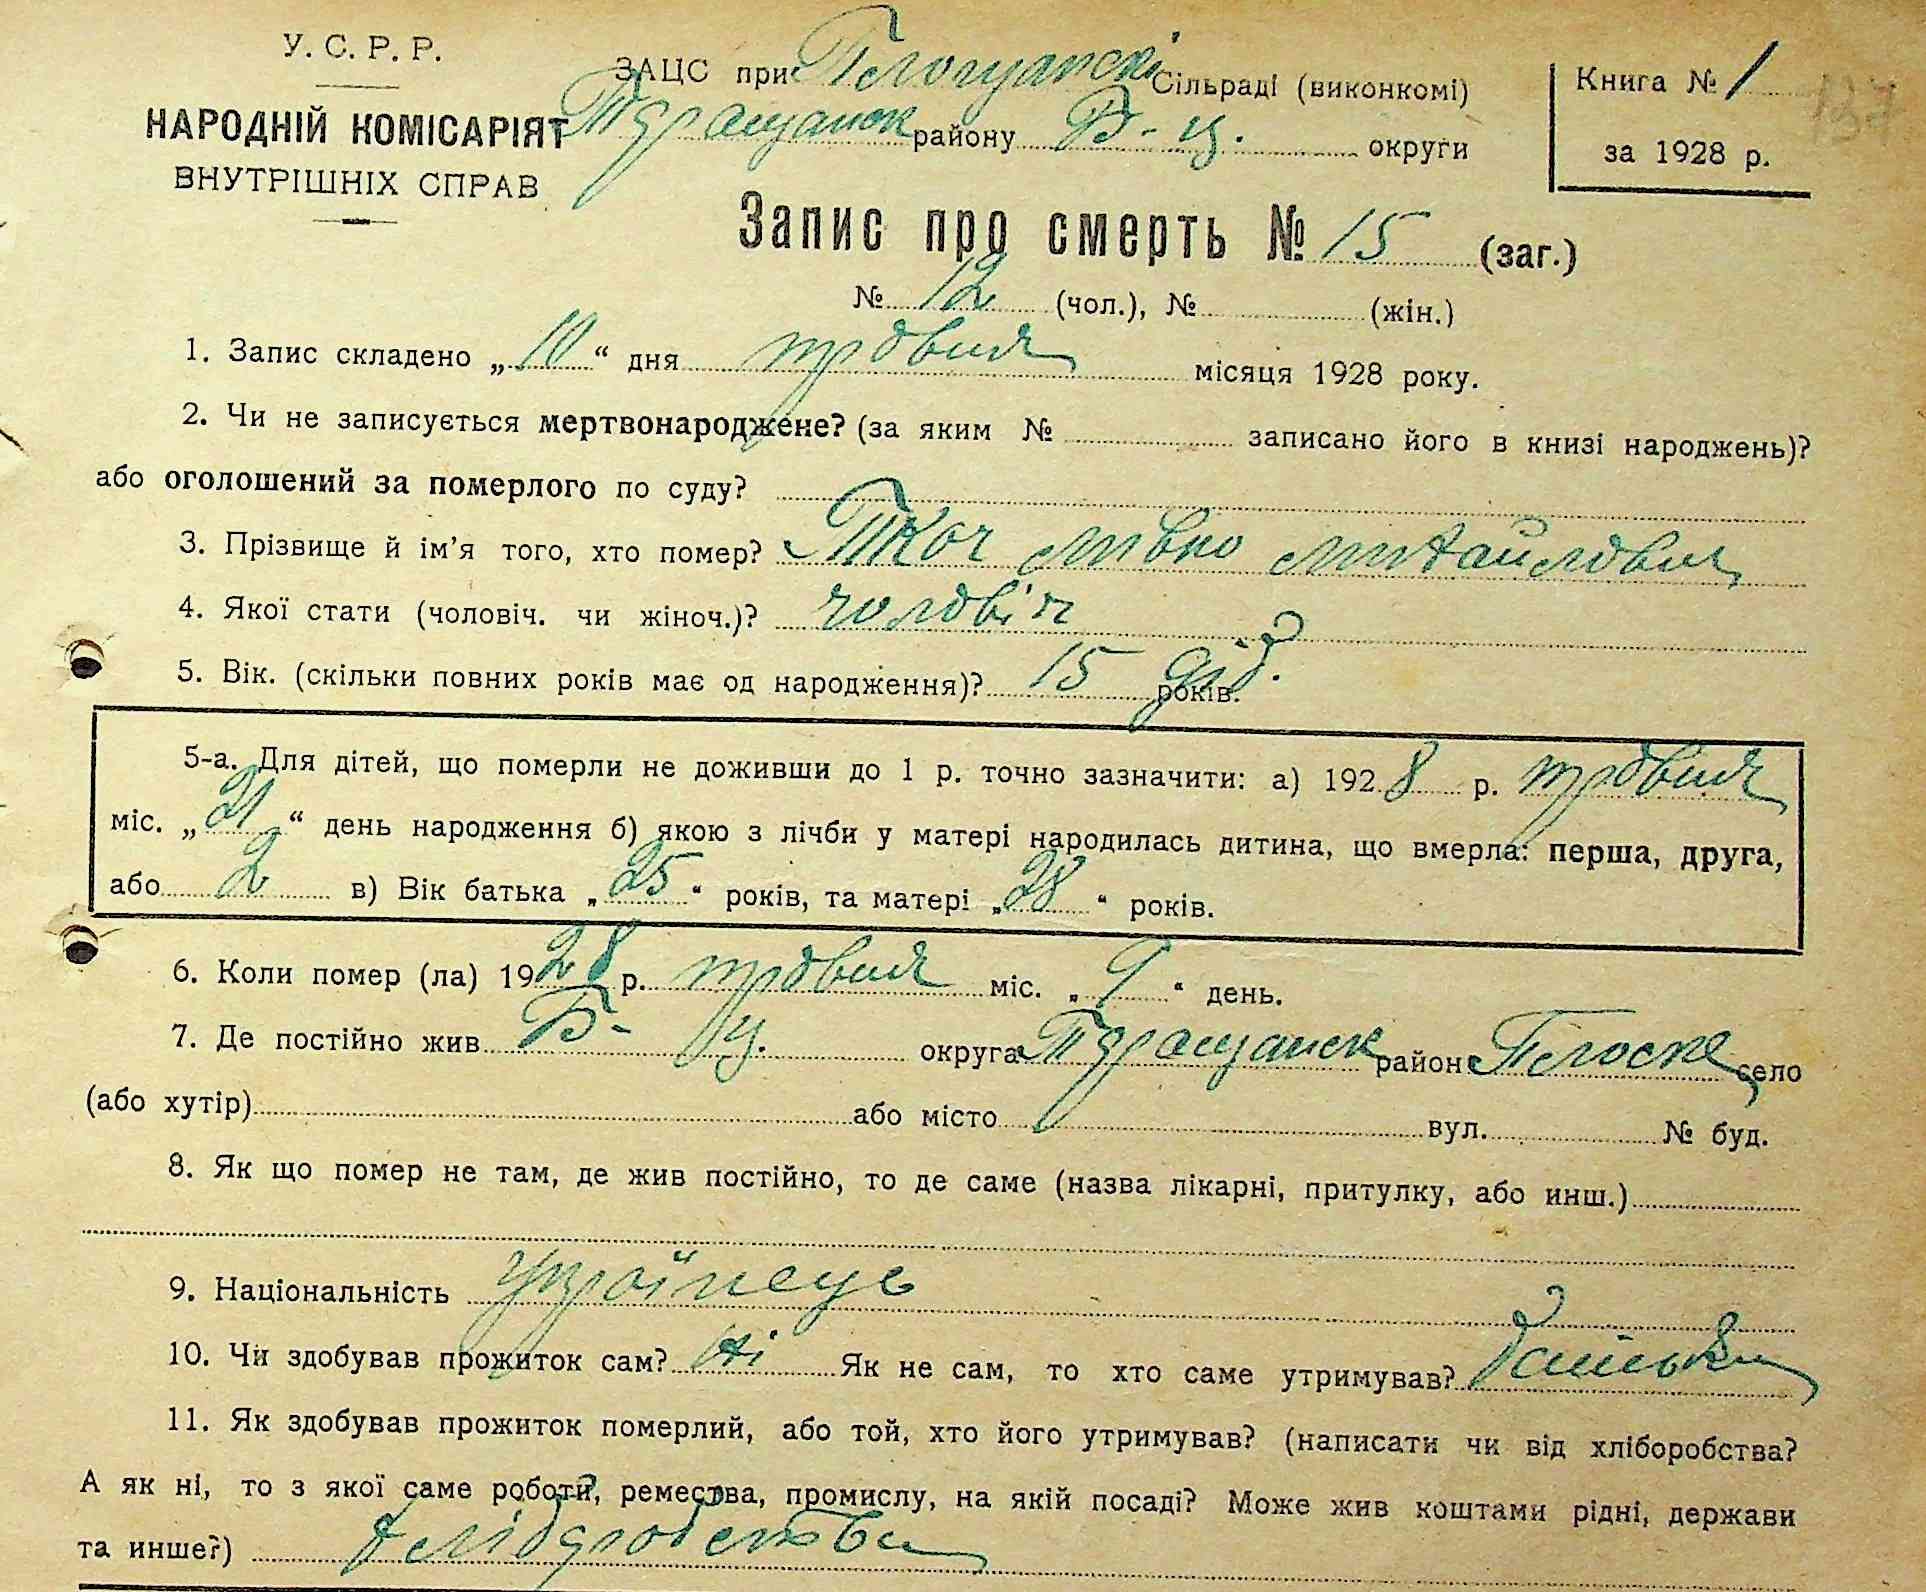 У. С. Р. Р.
НАРОДНІЙ КОМІСАРІЯТ
ВНУТРІШНІХ СПРАВ
ЗАЦС при Сільраді (виконкомі)
Таращанськ району Б-ц. округи
Книга № 1
за 1928 р.
137
Запис про смерть № 15 (заг.)
№ 12 (чол.), № (жін.)
1. Запис складено „10“ дня травня місяця 1928 року.
2. Чи не записується мертвонароджене? (за яким № записано його в книзі народжень)?
або оголошений за померлого по суду?
3. Прізвище й ім’я того, хто помер? Ткач Михайлович
4. Якої стати (чоловіч. чи жіноч.)? чоловіч
5. Вік. (скільки повних років має од народження)? 15 діб. років.
5-а. Для дітей, що померли не доживши до 1 р. точно зазначити: а) 1928 р. травня
міс. „21“ день народження б) якою з лічби у матері народилась дитина, що вмерла: перша, друга,
або 2 в) Вік батька „25“ років, та матері „28“ років.
6. Коли помер (ла) 1928 р. травня міс. „9“ день.
7. Де постійно жив Б-ц. округа Таращанськ район Плоске село
(або хутір) або місто вул. № буд.
8. Як що помер не там, де жив постійно, то де саме (назва лікарні, притулку, або инш.)
9. Національність Українець
10. Чи здобував прожиток сам? ні Як не сам, то хто саме утримував? батьки
11. Як здобував прожиток померлий, або той, хто його утримував? (написати чи від хліборобства?
А як ні, то з якої саме роботи?, ремества, промислу, на якій посаді? Може жив коштами рідні, держави
та инше?) хліборобства